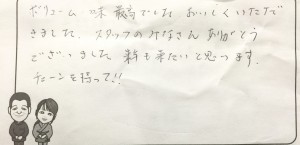 ボリューム 味 最高でした おいしくいただで
きました. スタッフのみなさん ありがとう
ございました 来年も来たいと思います.
チェーンを持って!!